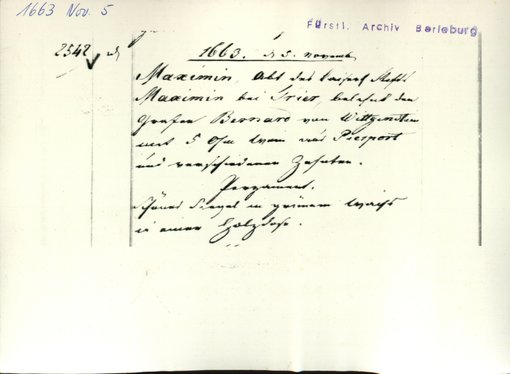 1663 Nov. 5
Fürstl. Archiv Berleburg
2542
1663. d. 5. Novemb.
Maximin, Abt des kaiserl. Stifts
Maximin bei Trier, belehnt den
Grafen Bernard von Wittgenstein
mit 5 Ohm Wein aus Piesport
und verschiedenen Zehnten.
Pergament.
Siegel in grünem Wachs
in einer Holzdose.